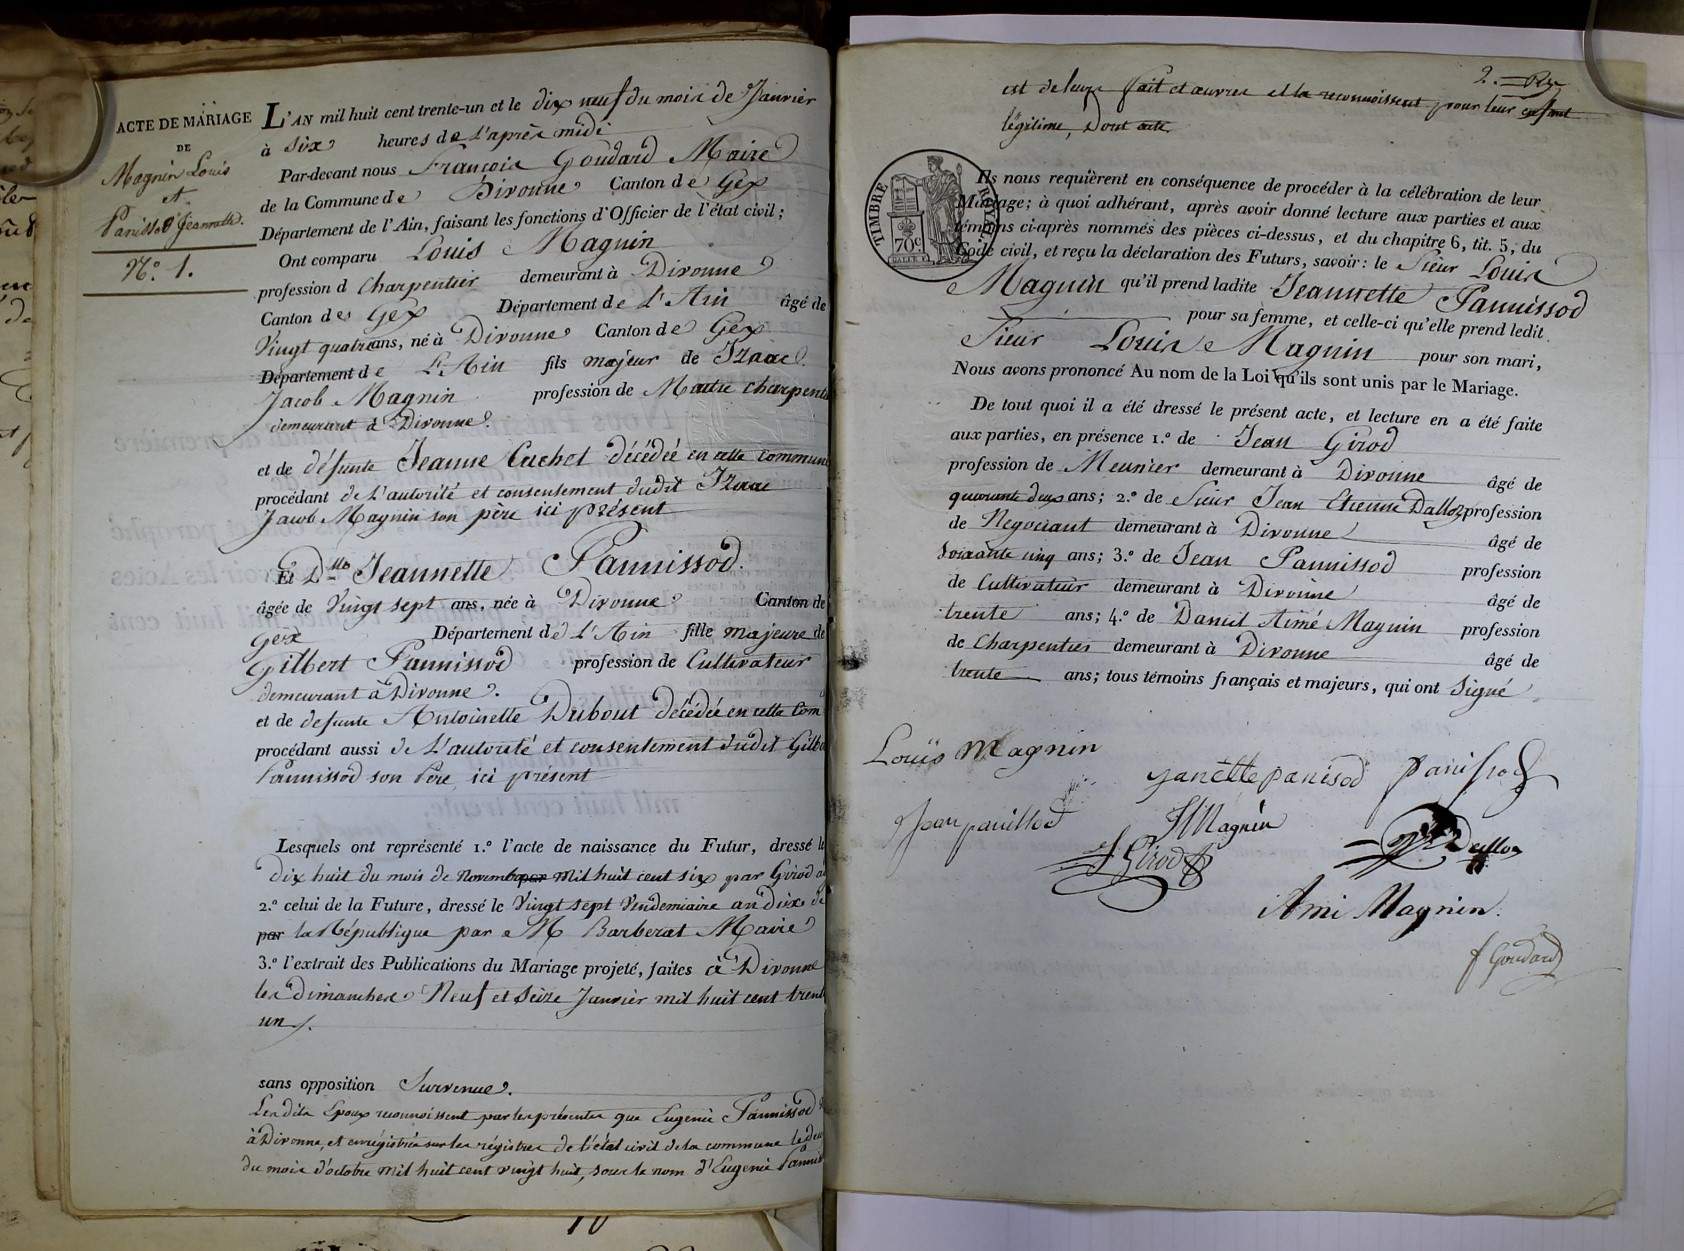 ACTE DE MARIAGE
DE
Magnin Louis
et
Panissod Jeannette.
N.º 1.
L'AN mil huit cent trente-un et le dix neuf du mois de Janvier
à Six heures de L'après midi
Par-devant nous François Goudard Maire
de la Commune de Divonne Canton de Gex
Département de l'Ain, faisant les fonctions d'Officier de l'état civil;
Ont comparu Louis Magnin
profession d Charpentier demeurant à Divonne
Canton de Gex Département de L'Ain âgé de
Vingt quatre ans, né à Divonne Canton de Gex
Département de L'Ain fils majeur de Izaac
Jacob Magnin profession de Maitre charpentie
demeurant à Divonne
et de défunte Jeanne Cuchet décédée en cette commune
procédant de L'autorité et consentement dudit Izaac
Jacob Magnin son père ici présent
Et Dlle Jeannette Pannissod.
âgée de Vingt sept ans, née à Divonne Canton de
Gex Département de L'Ain fille majeure de
Gilbert Pannissod profession de Cultivateur
demeurant à Divonne.
et de defunte Antoinette Dubout décédée en cette Com
procédant aussi de L'autorité et consentement dudit Gilb
Pannissod son Père ici présent
Lesquels ont représenté 1.º l'acte de naissance du Futur, dressé le
Dix huit du mois de Novembre par Mil huit cent six par Girod
2.º celui de la Future, dressé le Vingt sept Vendemiaire an dix de
par la République par M Barberat Maire
3.º l'extrait des Publications du Mariage projeté, faites à Divonne
les Dimanches Neuf et Seize Janvier mil huit cent trent
un.
sans opposition Survenue.
Les dits Epoux reconnoissent par les présentes que Eugenie Pannissod
à Divonne, et enregistrée sur les régistres de l'état civil de la commune le deux
du mois d'octobre mil huit cent vingt huit, sous le nom d'Eugenie Pannis
2.
est de leurs fait et œuvres et la reconnoissent pour leur enfant
légitime, Dont acte.
TIMBRE ROYAL
70c.
Ils nous requièrent en conséquence de procéder à la célébration de leur
Mariage; à quoi adhérant, après avoir donné lecture aux parties et aux
témoins ci-après nommés des pièces ci-dessus, et du chapitre 6, tit. 5, du
Code civil, et reçu la déclaration des Futurs, savoir: le Sieur Louis
Magnin qu'il prend ladite Jeannette Pannissod
pour sa femme, et celle-ci qu'elle prend ledit
Sieur Louis Magnin pour son mari,
Nous avons prononcé Au nom de la Loi qu'ils sont unis par le Mariage.
De tout quoi il a été dressé le présent acte, et lecture en a été faite
aux parties, en présence 1.º de Jean Girod
profession de Meunier demeurant à Divonne âgé de
quarante deux ans; 2.º de Sieur Jean Etienne Dalloz profession
de Negociant demeurant à Divonne âgé de
soixante cinq ans; 3.º de Jean Pannissod profession
de Cultivateur demeurant à Divonne âgé de
trente ans; 4.º de Daniel Aimé Magnin profession
de Charpentier demeurant à Divonne âgé de
trente ans; tous témoins français et majeurs, qui ont Signé
Louis Magnin
Janette panisod panissod
Jean panissod
JJMagnin
J Girod
Dalloz
Ami Magnin.
f Goudard